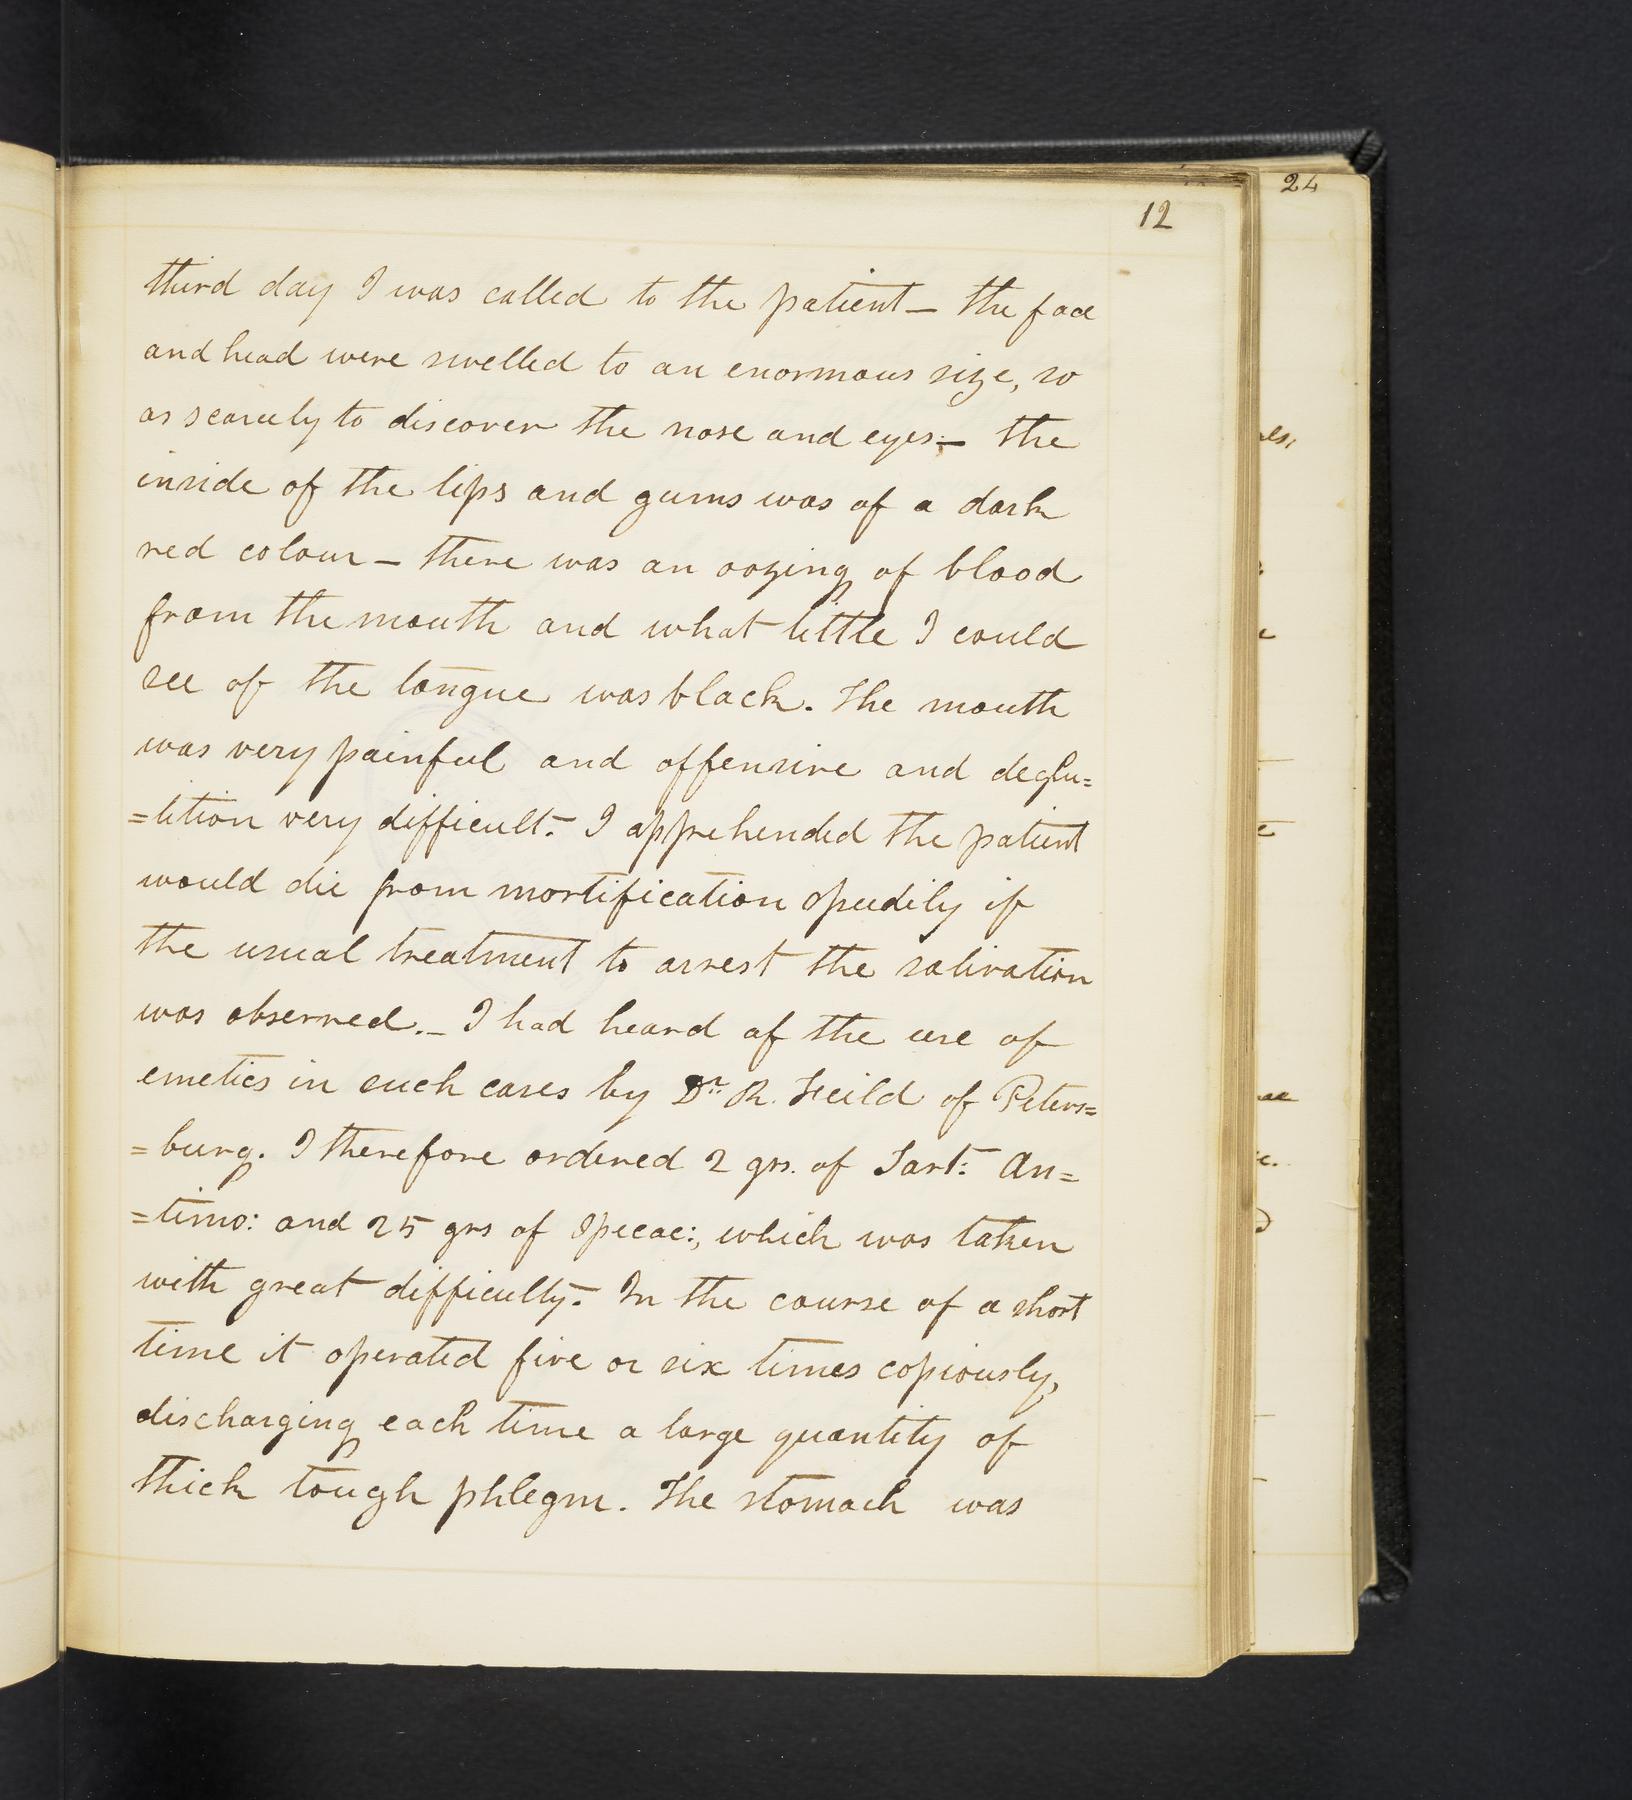 24
12
third day I was called to the patient — the face
and head were swelled to an enormous size, so
as scarcely to discover the nose and eyes; — the
inside of the lips and gums was of a dark
red colour — there was an oozing of blood
from the mouth and what little I could
see of the tongue was black. The mouth
was very painful and offensive and deglu=
=tition very difficult. — I apprehended the patient
would die from mortification speedily if
the usual treatment to arrest the salivation
was observed. — I had heard of the use of
emetics in such cases by Dr. R. Feild of Peters=
=burg. I therefore ordered 2 grs. of Tart: An=
=timo: and 25 grs of Ipecac:, which was taken
with great difficulty. — In the course of a short
time it operated five or six times copiously,
discharging each time a large quantity of
thick tough phlegm. The stomach was